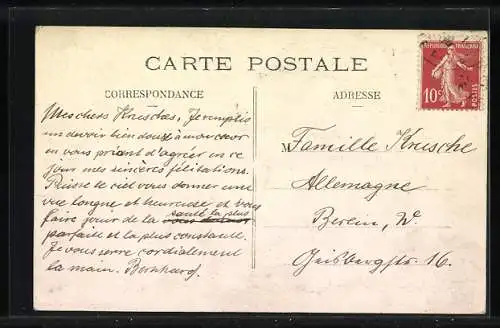 CARTE POSTALE
CORRESPONDANCE
ADRESSE
REPUBLIQUE FRANÇAISE
10c
POSTES
Mes chers Krusches, Je remplis
un devoir bien doux à mon cœur
en vous priant d'agréer en ce
jour mes sincères félicitations.
Puisse le ciel vous donner une
vue longue et heureuse et vous
faire jouir de la santé la plus
parfaite et la plus constante.
Je vous serre cordialement
la main. Bernhard.
M Famille Krusche
Allemagne
Berlin, W.
Geisbergstr. 16.